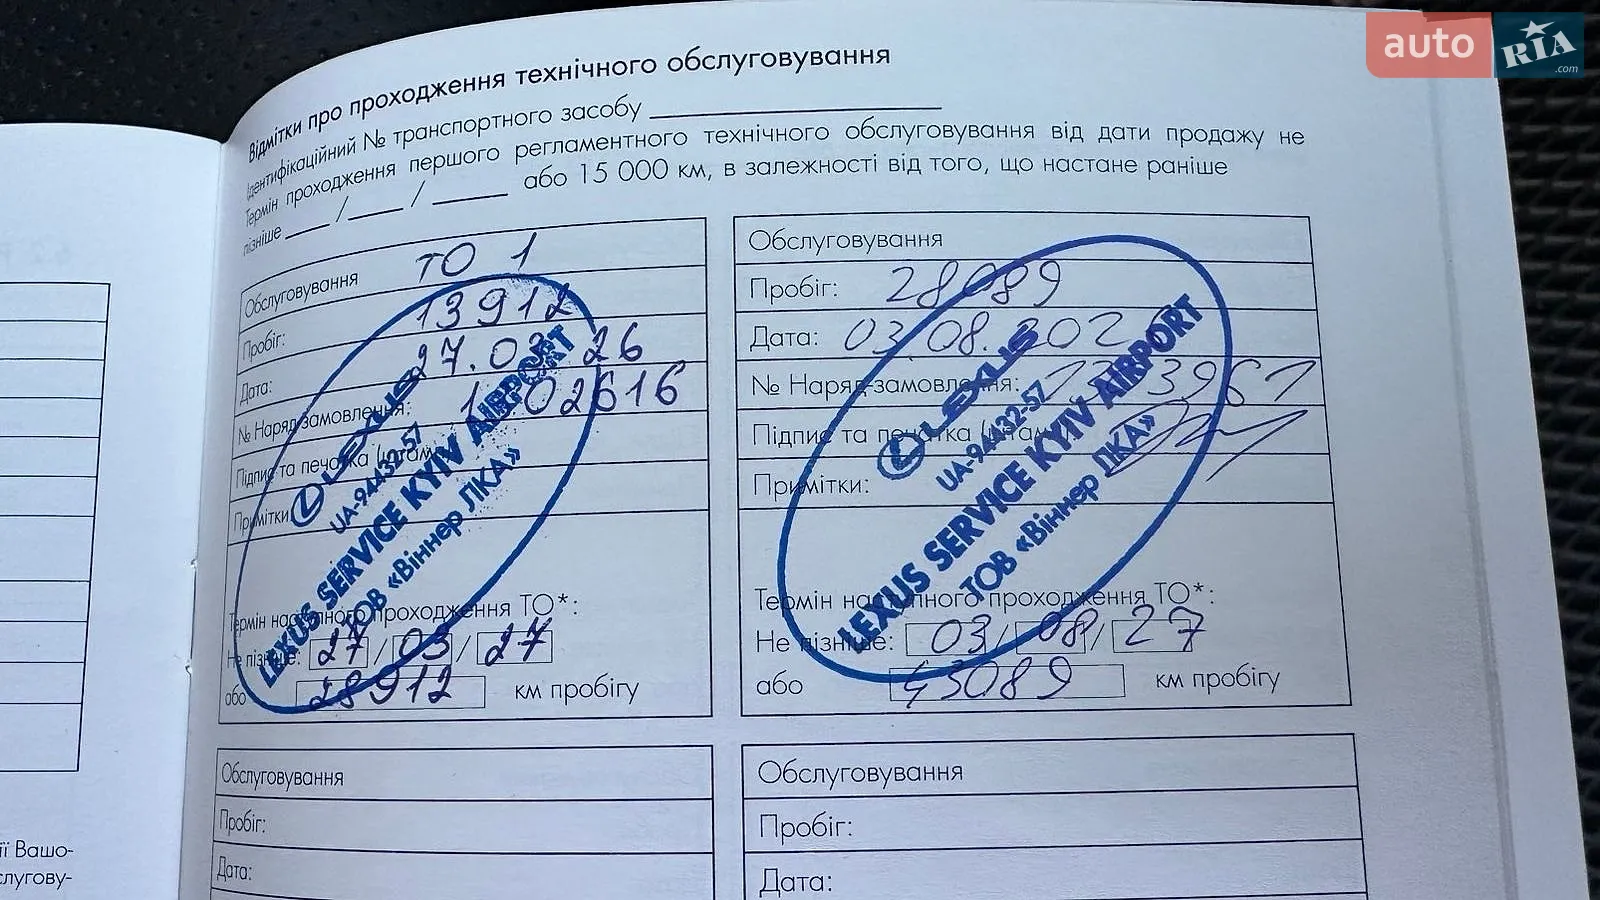 auto RIA .com
Відмітки про проходження технічного обслуговування
Ідентифікаційний № транспортного засобу
Термін проходження першого регламентного технічного обслуговування від дати продажу не
пізніше ___/___/___ або 15 000 км, в залежності від того, що настане раніше
Обслуговування ТО 1
Пробіг: 13912
Дата: 27.03.26
№ Наряд-замовлення: 02616
Підпис та печатка (штамп)
Примітки:
LEXUS
UA-94432-57
LEXUS SERVICE KYIV AIRPORT
ТОВ «Віннер ЛКА»
Термін наступного проходження ТО*:
Не пізніше: 27/03/27
або 28912 км пробігу
Обслуговування
Пробіг: 28089
Дата: 03.08.202
№ Наряд-замовлення: 3961
Підпис та печатка (штамп)
Примітки:
LEXUS
UA-94432-57
LEXUS SERVICE KYIV AIRPORT
ТОВ «Віннер ЛКА»
Термін наступного проходження ТО*:
Не пізніше: 03/08/27
або 43089 км пробігу
Обслуговування
Пробіг:
Дата:
Обслуговування
Пробіг:
Дата:
ії Вашо-
слугову-